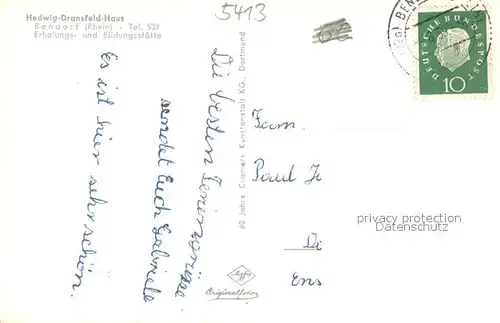 Hedwig-Dransfeld-Haus
Bendorf (Rhein) - Tel. 539
Erholungs- und Bildungsstätte
5413
Die besten Feriengrüsse
sendet Euch Gabriele
Es ist hier sehr schön.
60 Jahre Cramers Kunstanstalt KG., Dortmund
Agfa
Originalfoto
BEN
DEUTSCHE BUNDESPOST
10
Fam.
Paul
privacy protection
Datenschutz
Ens